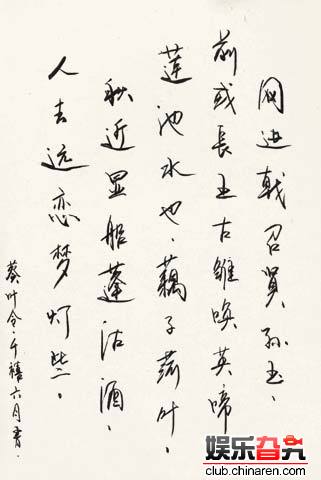 网进戟召贤孙玉、
前或长王古雏唤英啼
莲池水也、藕子荷叶。
秋近显船蓬沽酒。
人去远恋梦灯些。
葵叶令·千禧六月书.
娱乐旮旯
club.chinaren.com